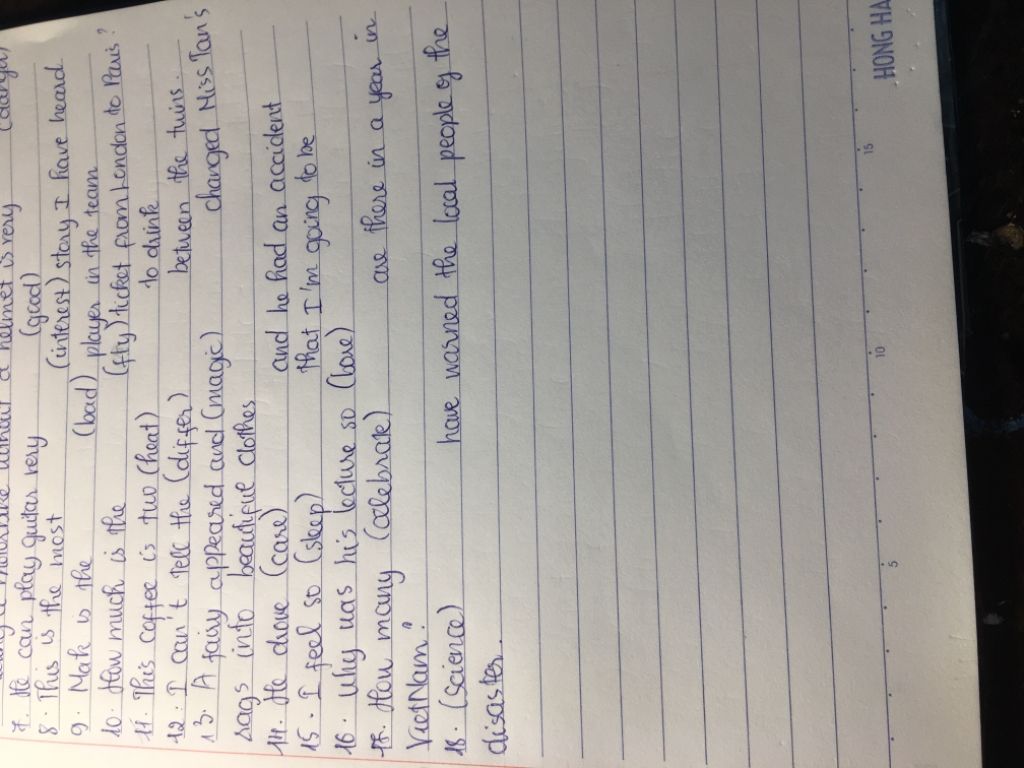 a helmet is very
7. He can play guitar very (good)
8. This is the most (interest) story I have heard
9. Mark is the (bad) player in the team
10. How much is the (fly) ticket from London to Paris?
11. This coffee is two (heat) to drink
12. I can't tell the (differ) between the twins.
13. A fairy appeared and (magic) changed Miss Tan's
rags into beautiful clothes
14. He drove (care) and he had an accident
15. I feel so (sleep) that I'm going to be
16. Why was his lecture so (bore)
17. How many (celebrate) are there in a year in
VietNam?
18. (Science) have warned the local people of the
disaster.
5
10
15
HONG HA